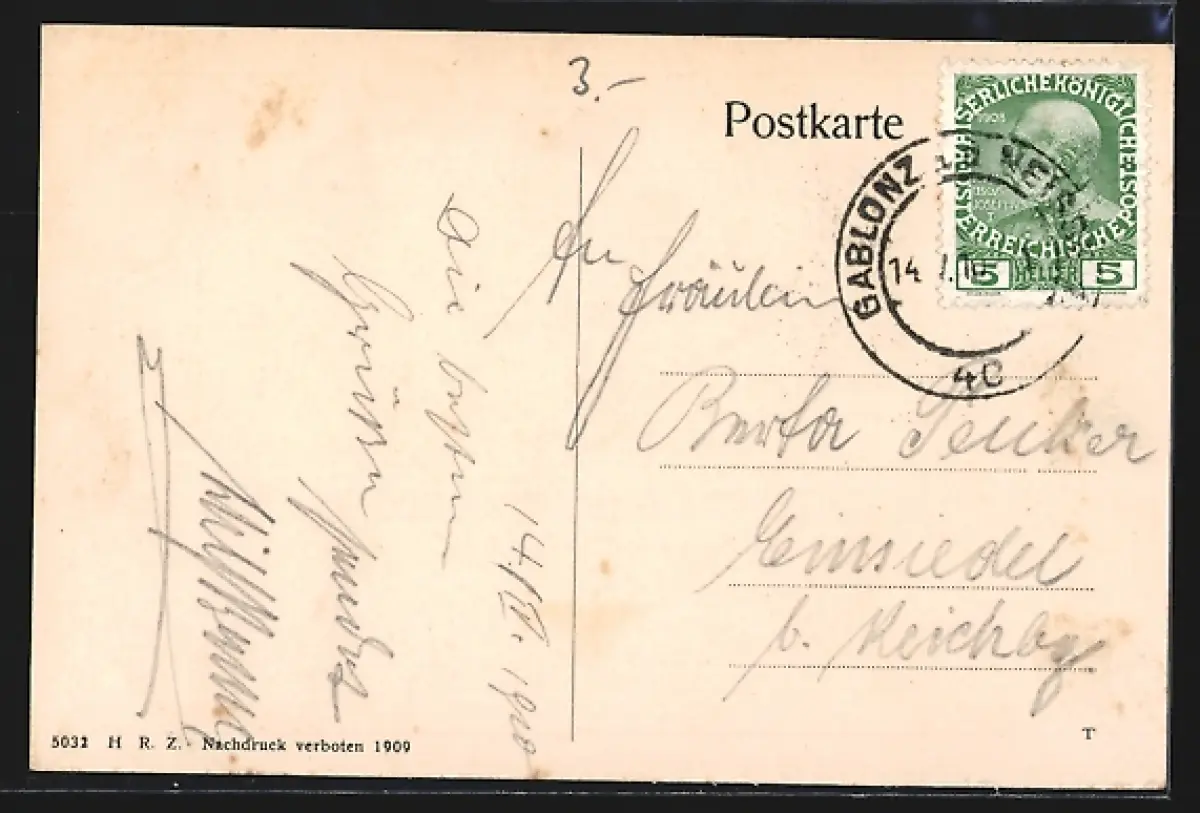 3.-
Postkarte
KAISERLICHEKÖNIGLICHE
ÖSTERREICHISCHEPOST
1908
5 HELLER 5
GABLONZ
14
4C
An
Fräulein
Berta
Einsiedel
b. Reichbg
Die besten
Grüße
sendet
14./IV. 1910
5032 H R. Z. Nachdruck verboten 1909
T